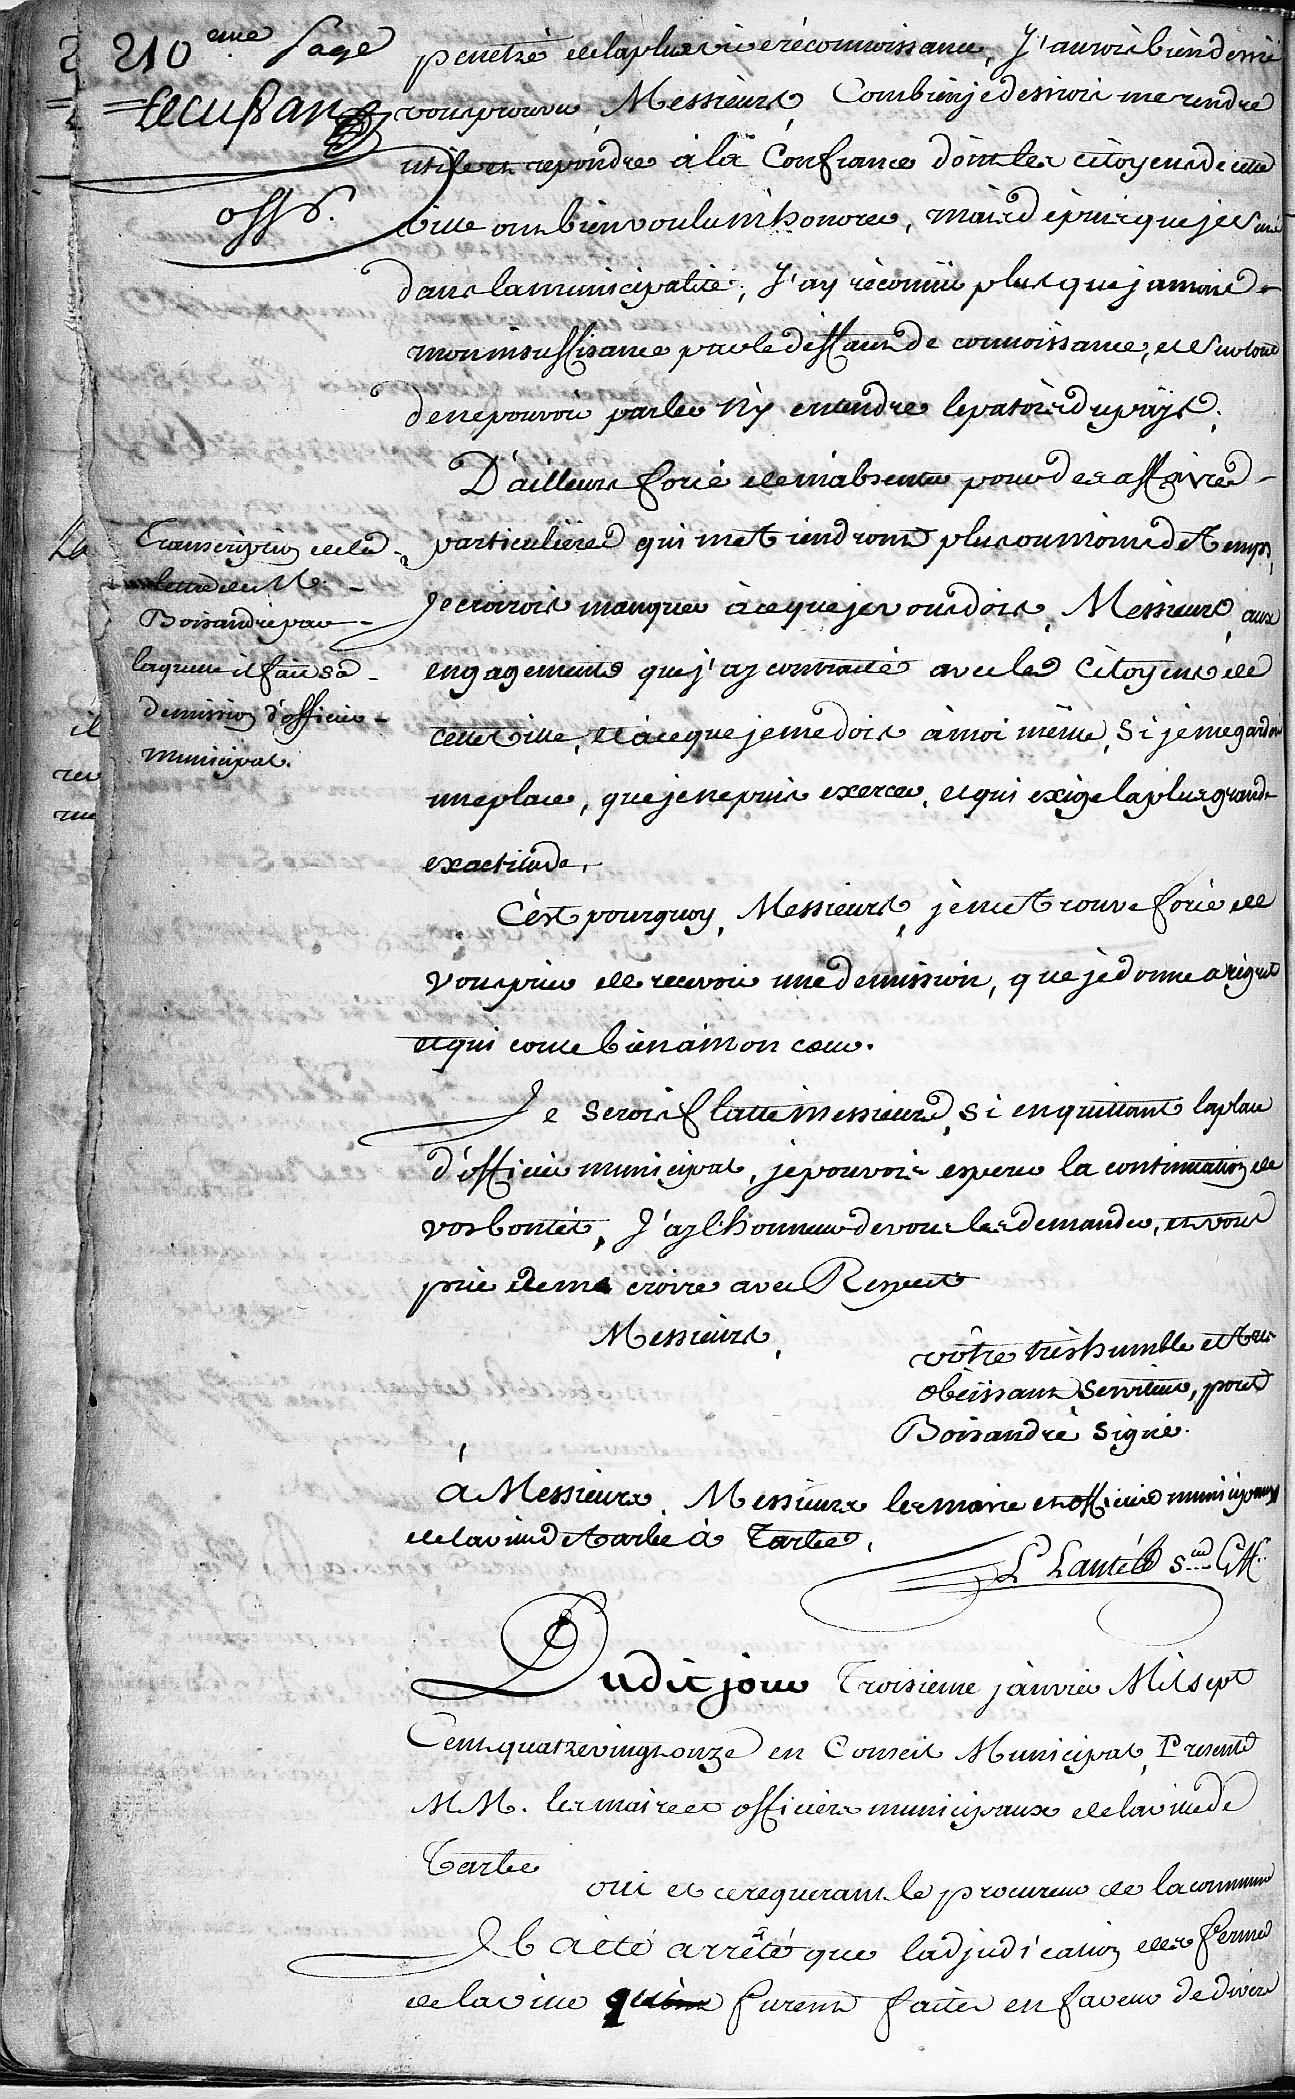 210 eme page
Lecussan
off. p.
penetré de la plus vive réconnoissance, J'aurois bien desiré
vous prouver, Messieurs, Combien je desirois me rendre
utile et repondre à la Confiance dont les citoyens de cette
ville ont bien voulu m'honorer, mais dépuis que je suis
dans la municipalité, J'ay réconnu plus que jamais
mon insuffisance par le deffaut de connoissance, et surtout
de ne pouvoir parler ny entendre le patois du pays.
D'ailleurs forcé de m'absenter pour des affaires
particulières qui me tiendront plus ou moins de temps,
Je croirois manquer à ce que je vous dois, Messieurs, aux
engagements que j'ay contracté avec les Citoyens de
cette ville, et à ce que je me dois à moi même, si je me gardois
une place, que je ne puis exercer, et qui exige la plus grande
exactitude.
C'est pourquoy, Messieurs, je me trouve forcé de
vous prier de recevoir une demission, que je donne a régret
et qui coute bien à mon cœur.
Je serois flatté messieurs, si en quittant la place
d'officier municipal, je pouvois esperer la continuation de
vos bontés, J'ay l'honneur de vous les demander, et vous
prie de me croire avec Respect
Messieurs,
vôtre très humble et tres
obéissant serviteur,
Boisandré signé.
à Messieurs, Messieurs les maire et officiers municipaux
de la ville de tarbe à Tarbe.
Transcription de la
lettre de M.
Boisandré par
laquelle il fait sa
demission d'officier
municipal.
Dudit jour Troisieme janvier Mil sept
Cent quatre vingt onze en Conseil Municipal, Presents
MM. les maire et officiers municipaux de la ville de
Tarbe
oui et ce requerant le procureur de la commune
Il a été arrêté que ladjudication des fermes
de la ville qui furent faites en faveur de divers